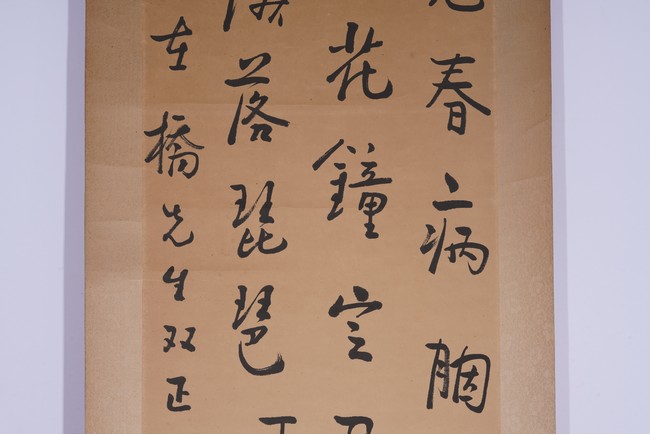 春病胭
花鐘定
落琵琶
橋先生双正